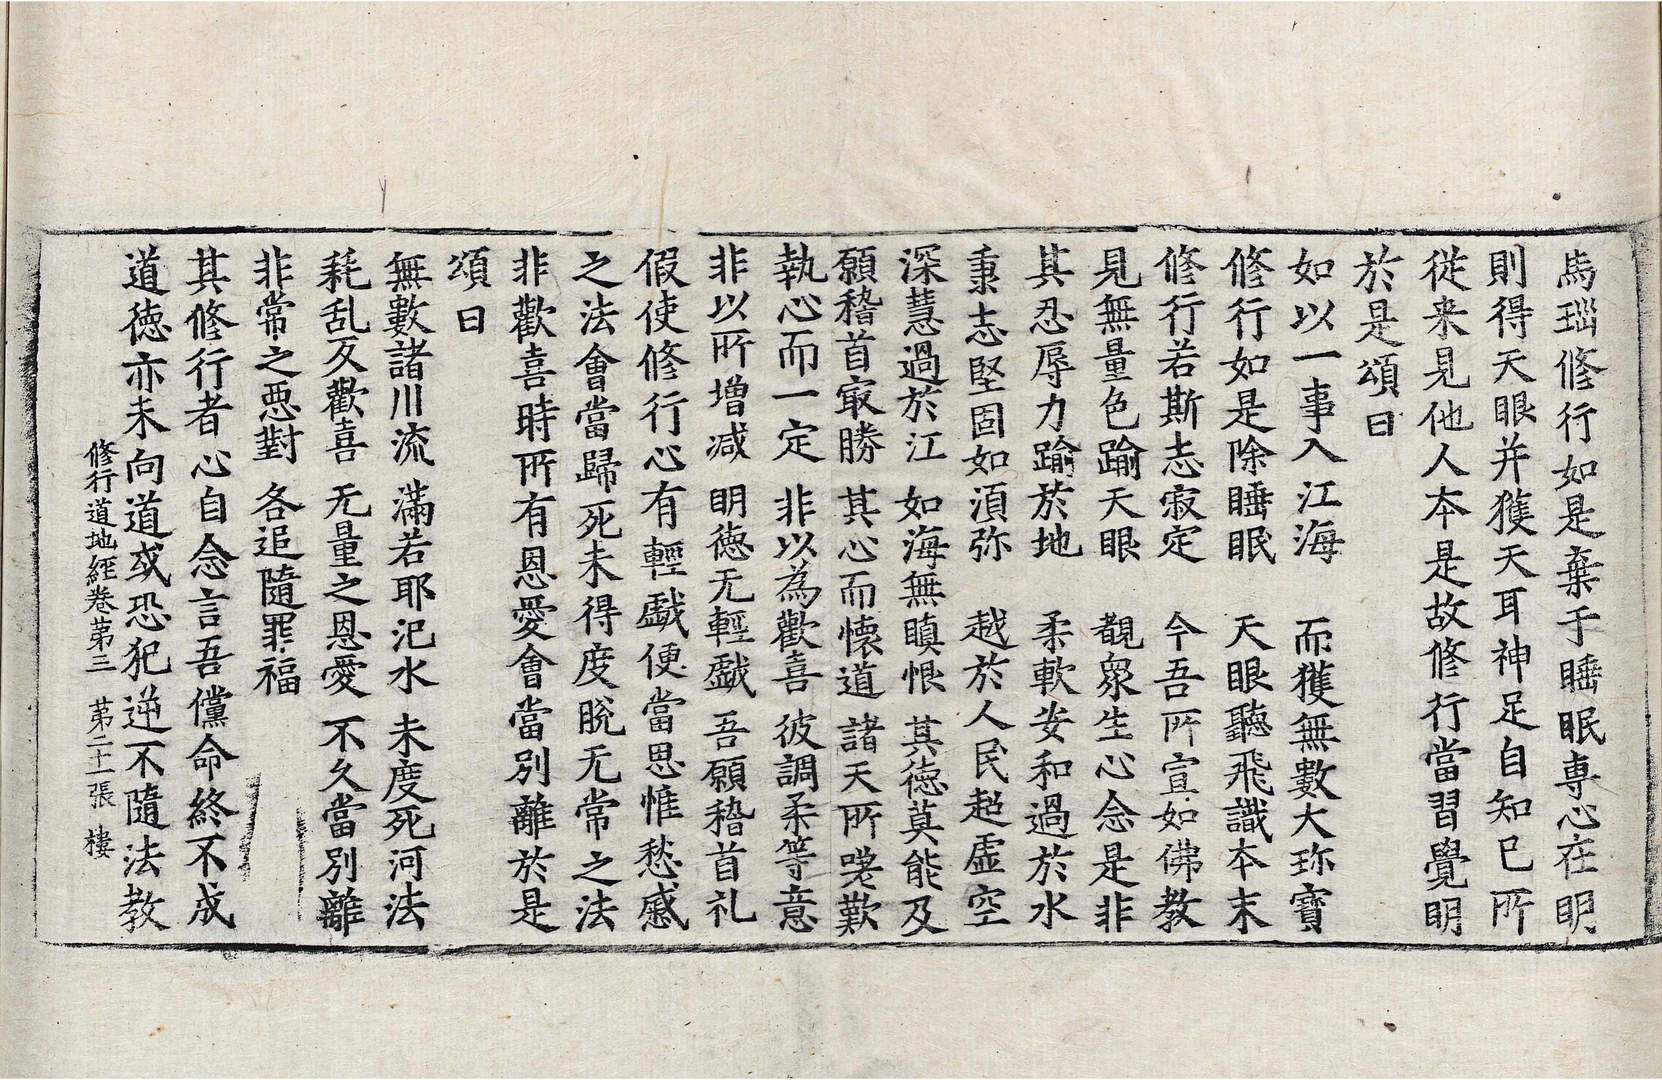 馬瑙修行如是棄于睡眠專心在明
則得天眼并獲天耳神足自知己所
從来見他人本是故修行當習覺明
於是頌曰
如以一事入江海　而獲無數大珎寶
修行如是除睡眠　天眼聽飛識本末
修行若斯志寂定　今吾所宣如佛教
見無量色踰天眼　覩衆生心念是非
其忍辱力踰於地　柔軟安和過於水
秉志堅固如須弥　越於人民超虛空
深慧過於江　如海無瞋恨　其德莫能及
願稽首㝡勝　其心而懷道　諸天所嗟歎
執心而一定　非以為歡喜　彼調柔等意
非以所增减　明德无輕戲　吾願稽首礼
假使修行心有輕戲便當思惟愁慼
之法會當歸死未得度脫无常之法
非歡喜時所有恩愛會當別離於是
頌曰
無數諸川流　滿若耶汜水　未度死河法
耗乱及歡喜　无量之恩愛　不久當別離
非常之惡對　各追隨罪福
其修行者心自念言吾儻命終不成
道德亦未向道或恐犯逆不隨法教
修行道地經卷第三　第二十一張　樓